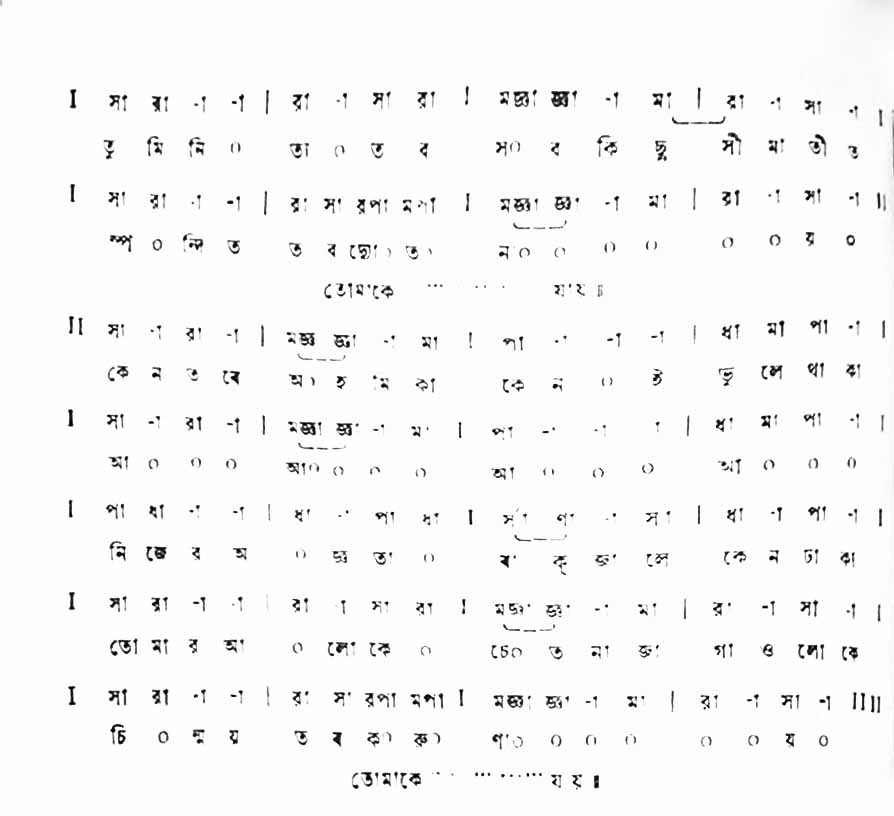 I সা রা -া -া | রা -া সা রা I মজ্ঞা জ্ঞা -া মা | রা -া সা -া I
তু মি নি ০ তা ০ ত ব স০ ব কি ছু সী মা তী ত
I সা রা -া -া | রা সা রপা মপা I মজ্ঞা জ্ঞা -া মা | রা -া সা -া II
স্প ০ ন্দি ত ত ব দ্যো০ ত০ না০ ০ ০ ০ ০ ০ য় ০
তোমাকে ... ... যায় ॥
II সা -া রা -া | মজ্ঞা জ্ঞা -া মা I পা -া -া -া | ধা মা পা -া I
কে ন ত বে অ০ হ মি কা কে ন ০ ই ভু লে থা কা
I সা -া রা -া | মজ্ঞা জ্ঞা -া মা I পা -া -া -া | ধা মা পা -া I
আ ০ ০ ০ আ০ ০ ০ ০ আ ০ ০ ০ আ ০ ০ ০
I পা ধা -া -া | ধা -া পা ধা I র্সা ণা -া র্সা | ধা -া পা -া I
নি জে র অ ০ জ্ঞ তা ০ বা ক্ জা লে কে ন ঢা কা
I সা রা -া -া | রা -া সা রা I মজ্ঞা জ্ঞা -া মা | রা -া সা -া I
তো মা র আ ০ লো কে ০ চে০ ত না জা গা ও লো কে
I সা রা -া -া | রা সা রপা মপা I মজ্ঞা জ্ঞা -া মা | রা -া সা -া IIII
চি ০ ন্ম য় ত ব ক০ রু০ ণা০ ০ ০ ০ ০ ০ য় ০
তোমাকে ... ... ... যায় ॥